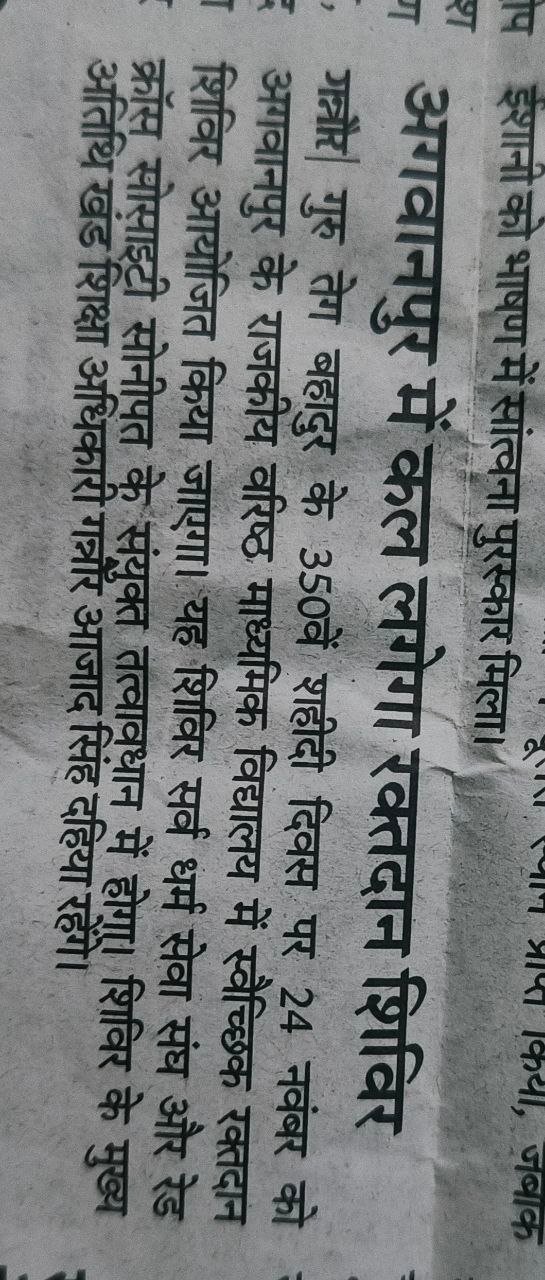 स्थान प्राप्त किया, जबकि
इशानी को भाषण में सांत्वना पुरस्कार मिला।
अगवानपुर में कल लगेगा रक्तदान शिविर
गन्नौर| गुरु तेग बहादुर के 350वें शहीदी दिवस पर 24 नवंबर को
अगवानपुर के राजकीय वरिष्ठ माध्यमिक विद्यालय में स्वैच्छिक रक्तदान
शिविर आयोजित किया जाएगा। यह शिविर सर्व धर्म सेवा संघ और रेड
क्रॉस सोसाइटी सोनीपत के संयुक्त तत्वावधान में होगा। शिविर के मुख्य
अतिथि खंड शिक्षा अधिकारी गन्नौर आजाद सिंह दहिया रहेंगे।